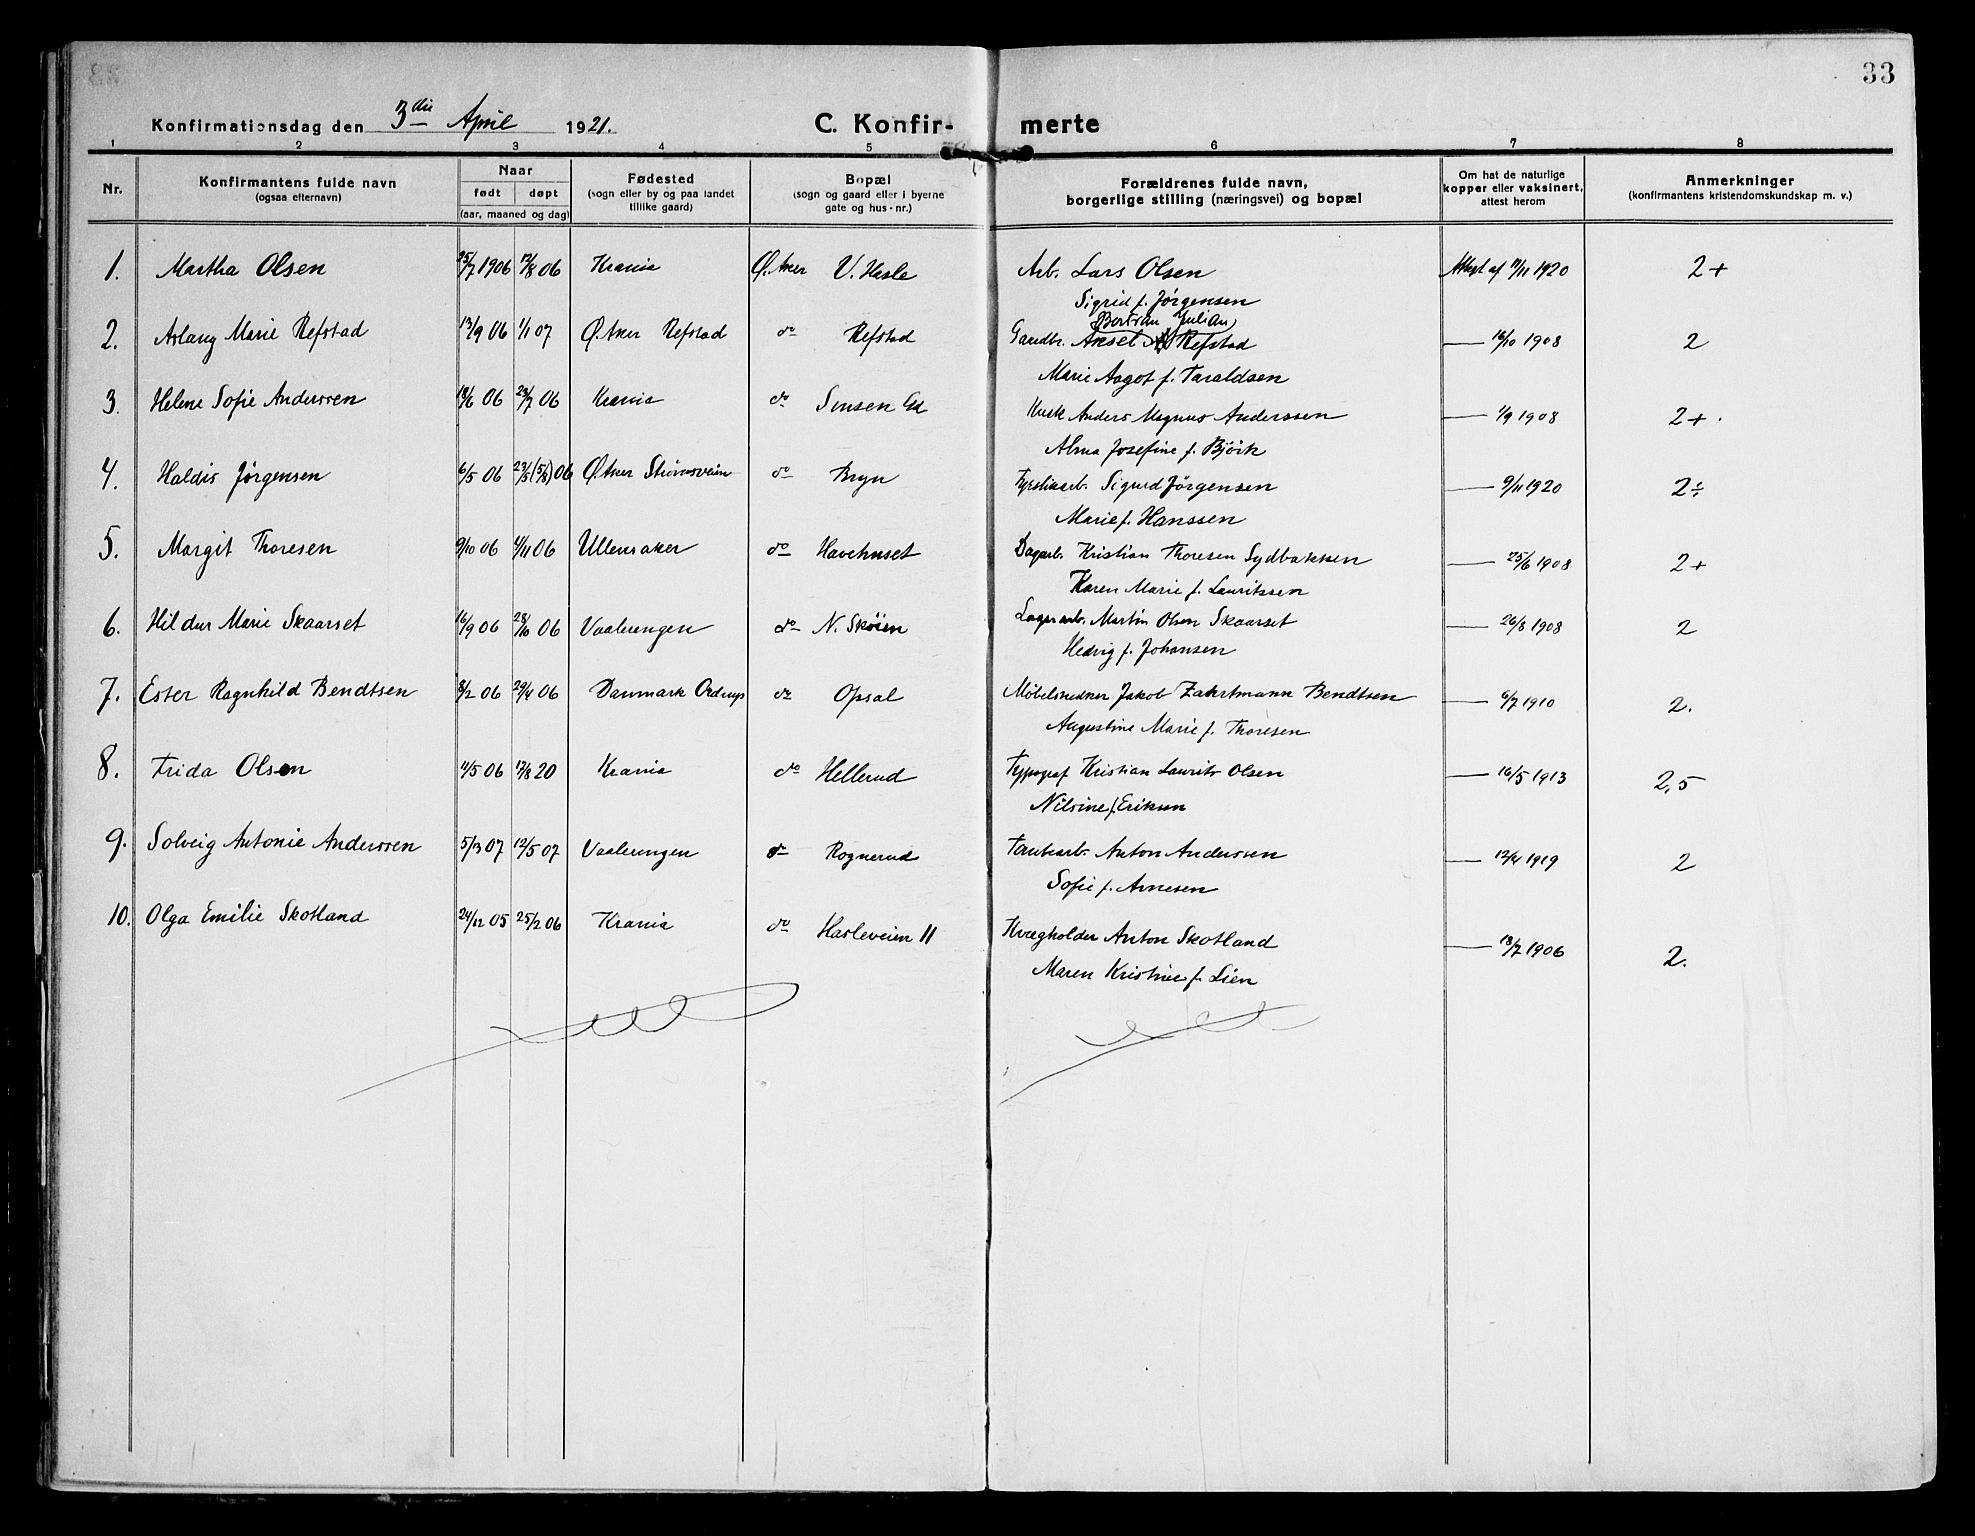 33
Konfirmationsdag den 3die April 1921.
C. Konfirmerte
1 2 3 4 5 6 7 8
Nr.
Konfirmantens fulde navn
(ogsaa efternavn)
Naar
født døpt
(aar, maaned og dag)
Fødested
(sogn eller by og paa landet
tillike gaard)
Bopæl
(sogn og gaard eller i byerne
gate og hus-nr.)
Forældrenes fulde navn,
borgerlige stilling (næringsvei) og bopæl
Om hat de naturlige
kopper eller vaksinert,
attest herom
Anmerkninger
(konfirmantens kristendomskundskap m. v.)
1. Martha Olsen 25/7 1906 12/8 06 Krania Ø. Aker V. Hasle Arb. Lars Olsen Attest af 11/11 1920 2+
Sigrid f. Jørgensen
Bertran Julian
2. Aslaug Marie Refstad 13/9 06 1/1 07 Ø. Aker Refstad do Refstad Gaardbr. Aksel Refstad — 16/10 1908 2
Marie Aagot f. Taraldsen
3. Helene Sofie Anderssen 18/6 06 29/7 06 Krania do Sinsen Gd Kusk Anders Magnus Anderssen — 1/9 1908 2+.
Alma Josefine f. Björk
4. Haldis Jørgensen 6/5 06 23/5 (5/8) 06 Ø. Aker Strømsveien do Bryn Fyrstikarb. Sigurd Jørgensen — 9/11 1920 2÷
Marie f. Hanssen
5. Margit Thoresen 9/10 06 4/11 06 Ullensaker do Havehuset Dagarb. Kristian Thoresen Sydbakken — 25/6 1908 2+
Karen Marie f. Lauritssen
6. Hildur Marie Skaarset 16/9 06 28/10 06 Vaalerengen do N. Skøien Lagerarb. Martin Olsen Skaarset — 26/8 1908 2
Hedvig f. Johansen
7. Ester Ragnhild Bendtsen 8/2 06 29/4 06 Danmark Ordrup do Opsal Møbelsnedker Jakob Zahrtmann Bendtsen — 6/7 1910 2.
Augustine Marie f. Thoresen
8. Frida Olsen 11/5 06 17/8 20 Krania do Hellerud Typograf Kristian Laurits Olsen — 16/5 1913 2,5
Nilsine f. Eriksen
9. Solveig Antonie Anderssen 5/13 07 12/5 07 Vaalerengen do Rognerud Tautarb. Anton Anderssen — 12/4 1919 2
Sofie f. Arnesen
10. Olga Emilie Skotland 24/12 05 25/2 06 Krania do Hasleveien 11 Kvægholder Anton Skotland — 18/7 1906 2.
Maren Kristine f. Lien